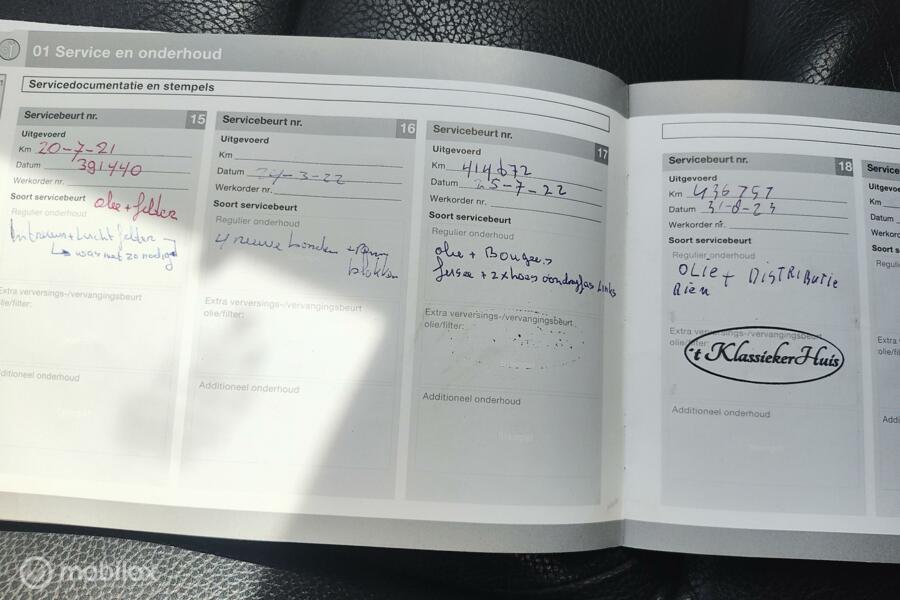 01 Service en onderhoud
Servicedocumentatie en stempels
Servicebeurt nr. 15
Uitgevoerd
Km 20-7-21
Datum 391440
Werkorder nr.
Soort servicebeurt olie + filter
Regulier onderhoud
Interieur + Lucht felder
was niet zo nodig
Extra verversings-/vervangingsbeurt
olie/filter:
dditioneel onderhoud
Servicebeurt nr. 16
Uitgevoerd
Km
Datum 24-3-22
Werkorder nr.
Soort servicebeurt
Regulier onderhoud
4 nieuwe banden + Rem
blokken
Extra verversings-/vervangingsbeurt
olie/filter:
Additioneel onderhoud
Servicebeurt nr. 17
Uitgevoerd
Km 414672
Datum 25-7-22
Werkorder nr.
Soort servicebeurt
Regulier onderhoud
olie + Bougies
fusee + 2x hoes Links
Extra verversings-/vervangingsbeurt
olie/filter:
Additioneel onderhoud
Servicebeurt nr. 18
Uitgevoerd
Km 436757
Datum 31-8-23
Werkorder nr.
Soort servicebeurt
Regulier onderhoud
OLIE + DISTRIBUTIE
Riem
Extra verversings-/vervangingsbeurt
olie/filter:
't KlassiekerHuis
Additioneel onderhoud
Service
Uitgevoe
Km
Datum
Werkord
Soort s
Regulie
Extra
olie/fi
Addi
mobilox